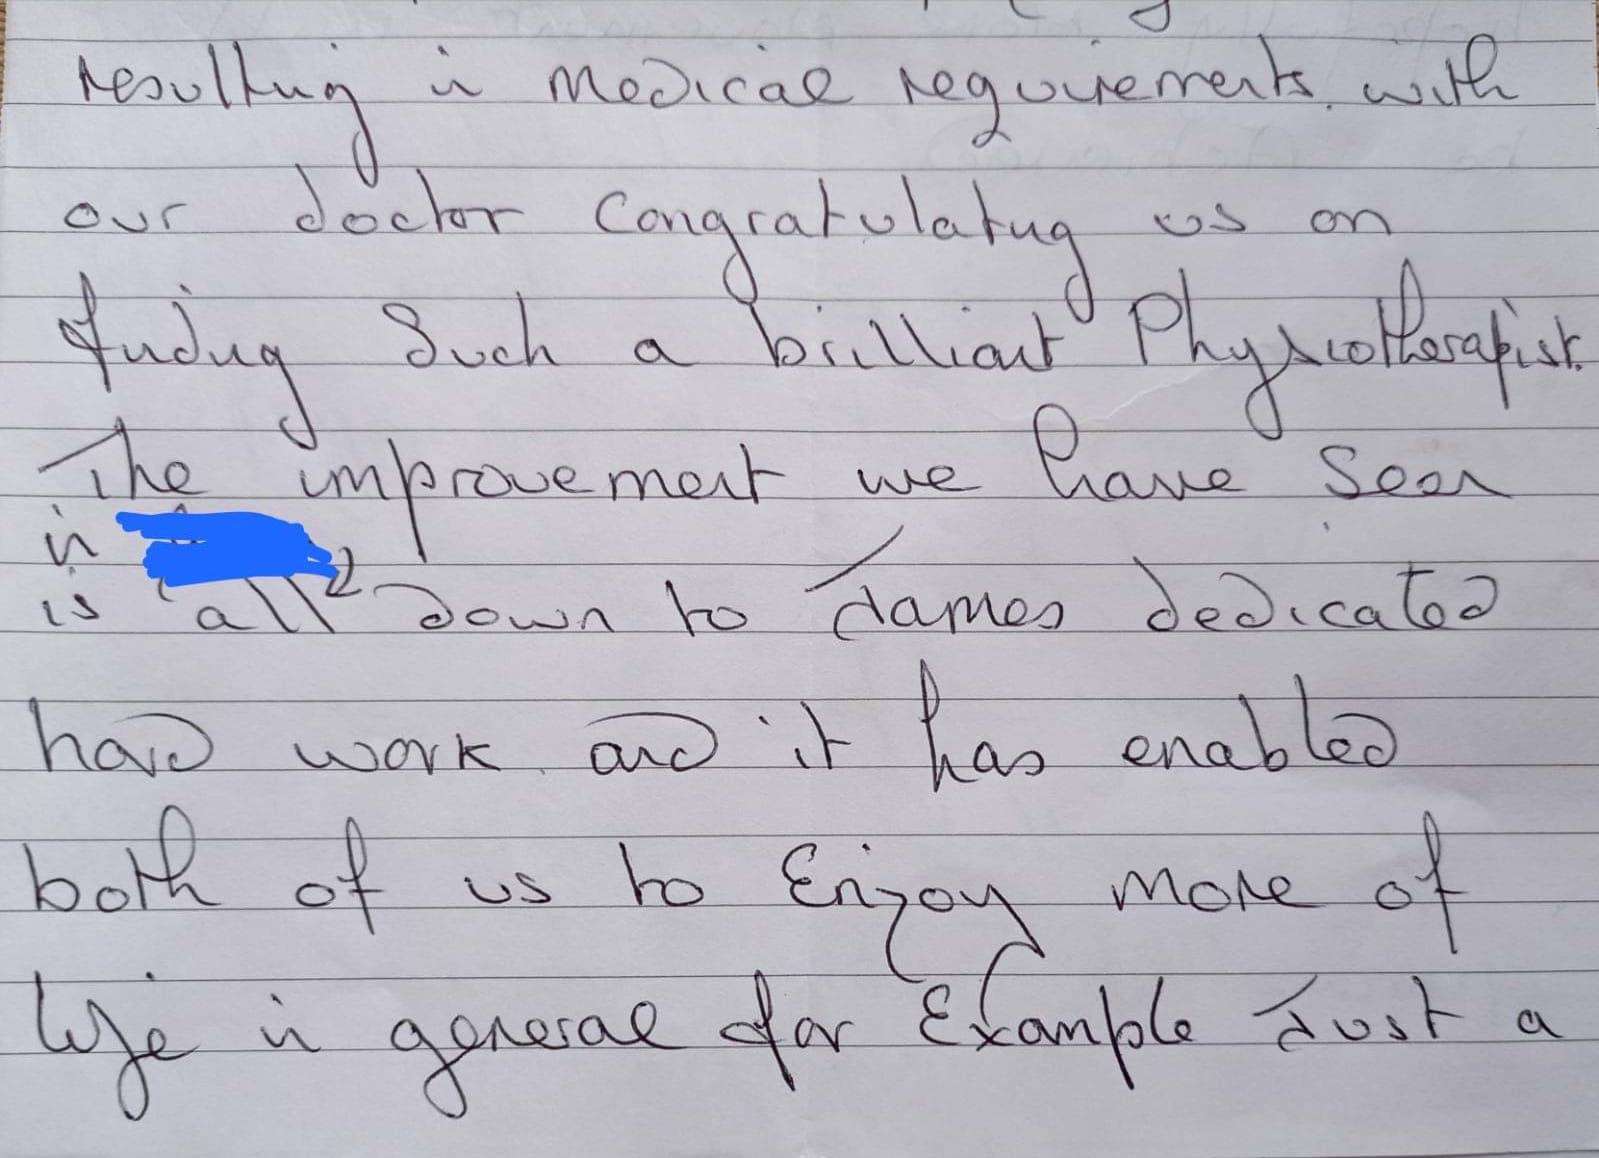 resulting in medical requirements. with
our doctor Congratulating us on
finding Such a brilliant Physiotherapist.
The improvement we have Seen
in
is all down to James dedicated
hard work. and it has enabled
both of us to Enjoy more of
life in general for Example Just a